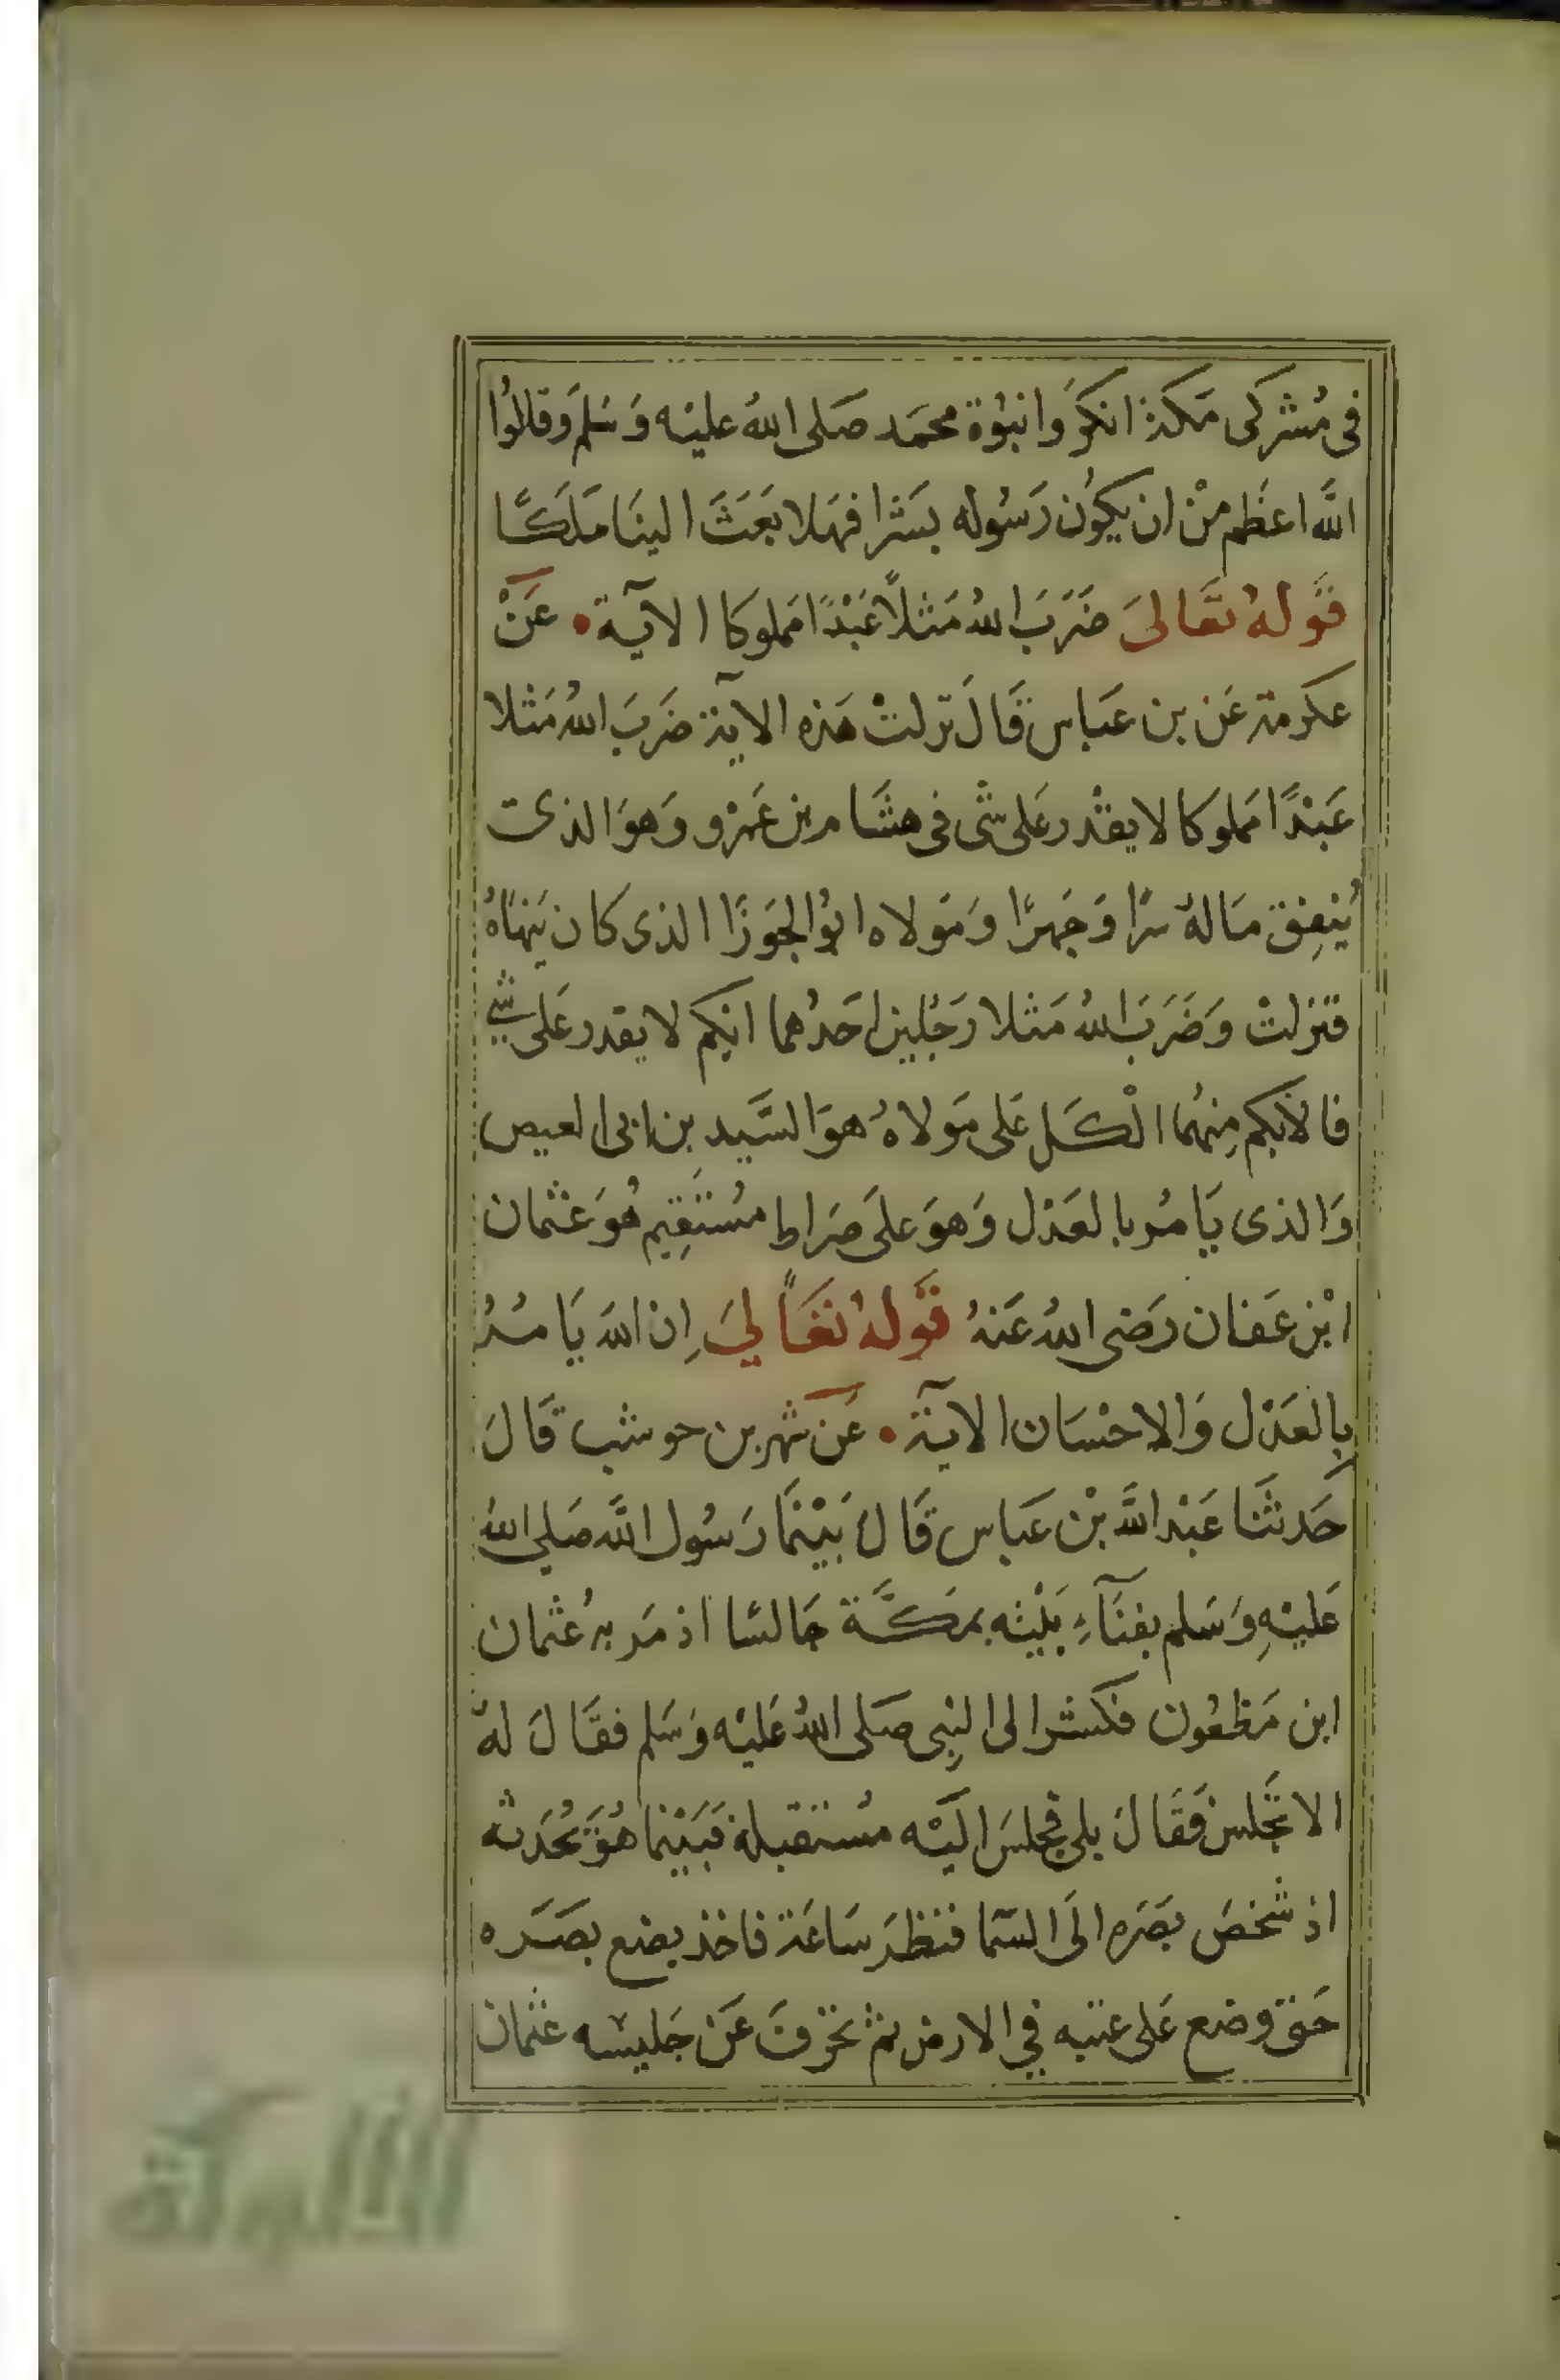 فى مُشركى مَكة انكرَوا نبوُة محمَد صَلى اللهُ عليْه وَسَلم وَقالوُا
اللَّه اعظَم مِنْ ان يكوُن رَسُوله بَشرا فهَلا بَعَثَ الينَا مَلَكًا
قَوله تعَالىَ ضَرَبَ اللهُ مَثلاً عَبْدًا مَملوكا الآيـة • عَنْ
عكرمة عَن بن عَباس قَالَ نزلتْ هَذه الآية ضرَبَ اللهُ مَثلا
عَبْدًا مَملوكا لا يقْدر عَلى شَى فى هشَام بن عَمْرو وَهوَ الذى
يُنفِق مَالهُ سرًا وَجَهرًا وَمَولاه ابوُ الجَوزَا الذى كان يَنهَاهُ
فنزلتْ وَضَرَبَ اللهُ مَثلا رَجُلين احَدُهما ابكم لا يقدر عَلى شي
فالأبكم مِنهُما الْكَل عَلى مَولاهُ هوَ السَّيد بِن ابى العيص
وَالذى يَامُر بالعَدْل وَهوَ علىَ صَراط مسُتَقِيم هُوَ عَثمان
ابْن عَفان رَضى اللهُ عَنهُ قَوله تعَالىَ اِن اللهَ يَامُـرُ
بالعَدْل وَالاحْسَان الآيـة • عَن شهر بن حوشب قَالَ
حَدثنَا عَبْد اللَّه بْن عَباس قَالَ بَيْنمَا رَسُول اللَّه صَلى اللهُ
عَليْهِ وَسَلم بفنَآءِ بَيْته بمَكَّة جَالسًا اذ مَر بهُ عُثمان
ابن مَظعُون فكشر الى النبِى صَلى اللهُ عَليْه وَسَلم فقَالَ لهُ
الا تجَلس فَقَالَ بلى فجلسَ اليَه مسُتقبله فبَيْنما هُوَ يحُدَثه
اذ شخصَ بصَره الىَ السَما فنظرَ سَاعَة فاخذ يضع بصَـره
حَتى وضع عَلى عتبه في الارض ثم تحرفَ عَن جَليسه عثمان
الألوكة